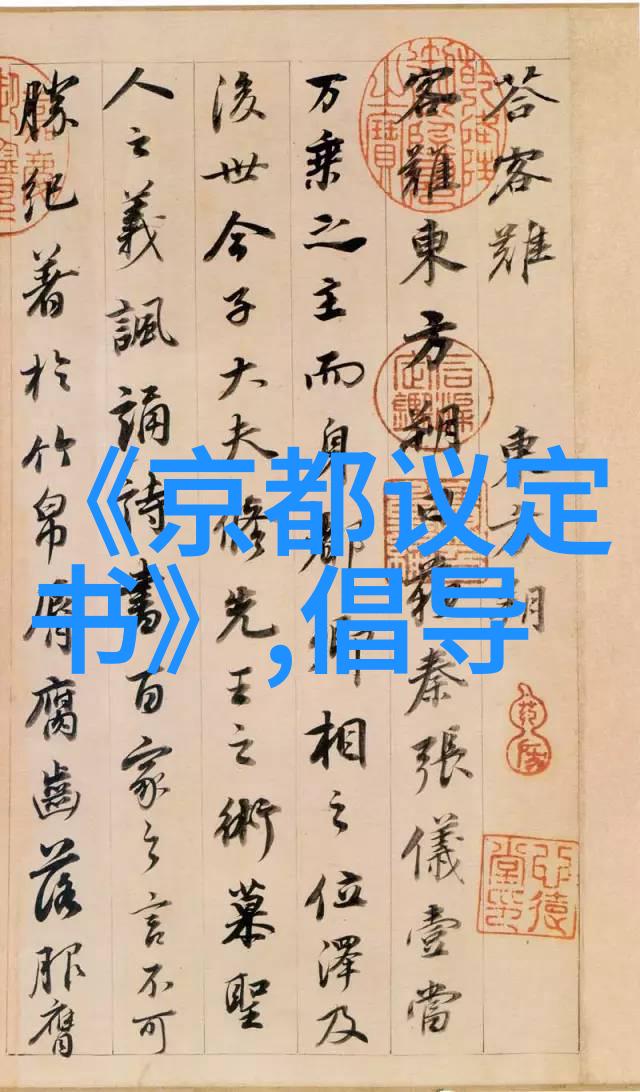 答客難 東方朔
客難東方朔曰蘇秦張儀壹當
万乗之主而身都卿相之位澤及
後世今子大夫修先王之術慕聖
人之義諷誦詩書百家之言不可
勝紀著於竹帛脣腐齒落服膺
《京都议定
书》,倡导